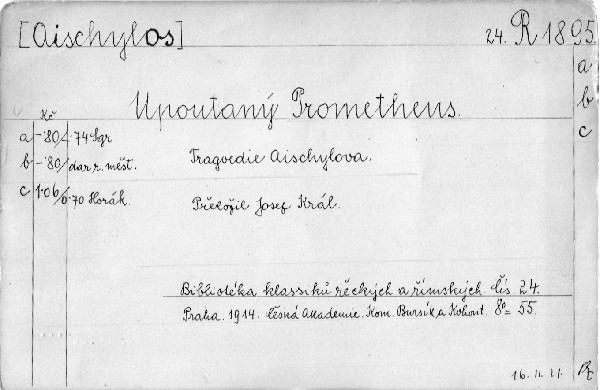 [Aischylos] 24. R 1895
a
b
c
Upoutaný Prometheus.
Kč
a -'80/ 1.74 Sgr
b -'80/ dar r. měst.
Tragoedie Aischylova.
c 1.06/ 6.70 Horák.
Přeložil Josef Král.
Bibliotéka klassiků řeckých a římských čís. 24.
Praha. 1914. Česká Akademie. Kom. Bursík a Kohout. 8° = 55.
16. II. 21.